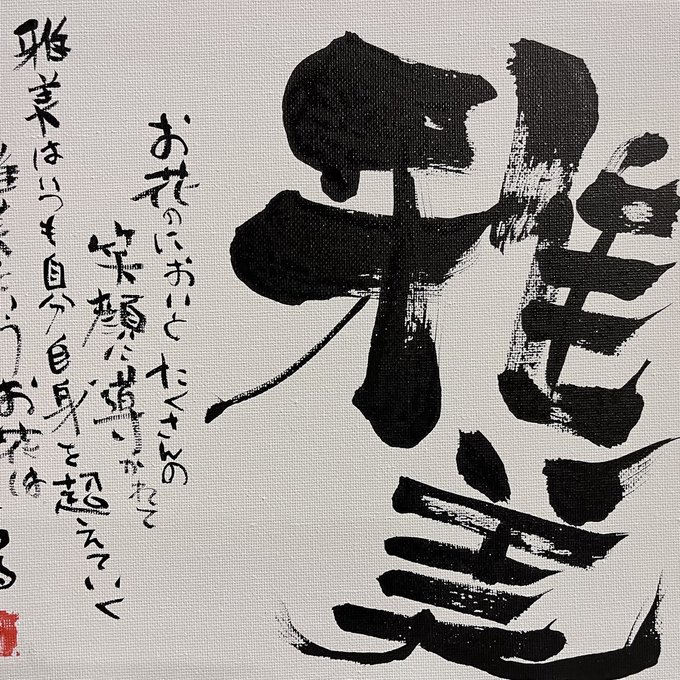 雅美
お花のにおいと たくさんの
笑顔に導かれて
雅美はいつも自分自身を超えていく
雅美というお花は